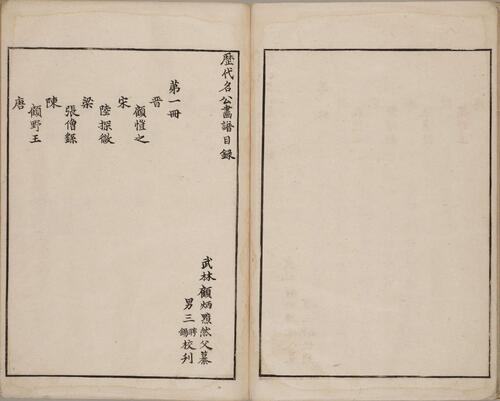 歷代名公畫譜目錄
武林顧炳黯然父纂
男三聘錫校刋
第一冊
晉
顧愷之
宋
陸探微
梁
張僧繇
陳
顧野王
唐